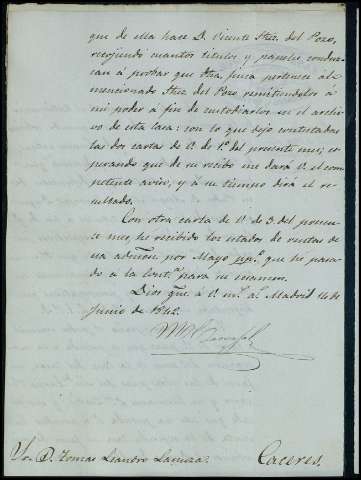 que de ella hace D. Vicente Stez. del Pozo,
recojiendo cuantos titulos y papeles conduz-
can á probar que dha. finca pertenece al
mencionado Stez. del Pozo remitiendolos á
mi poder á fin de custodiarlos en el archi-
vo de esta casa: con lo que dejo contestadas
las dos cartas de V. de 1º del presente mes; es-
perando que de su recibo me dará V. el com-
petente aviso, y á su tiempo dirá el re-
sultado.
Con otra carta de V. de 3 del presen-
te mes, he recibido los estados de rentas de
su admon. por Mayo ppº. que he pasa-
do á la Contª. para su examen.
Dios gue. á V. ms. as. Madrid 14 de
Junio de 1842.
Sor. D. Tomas Leandro Caceres.